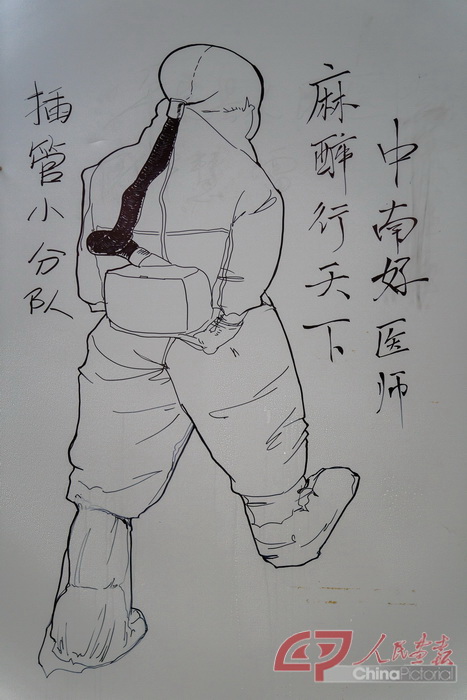 中南好医师
麻醉行天下
插管小分队
人民画报
ChinaPictorial